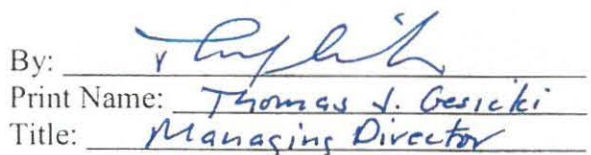 By:
Print Name: Thomas J. Gesicki
Title: Managing Director